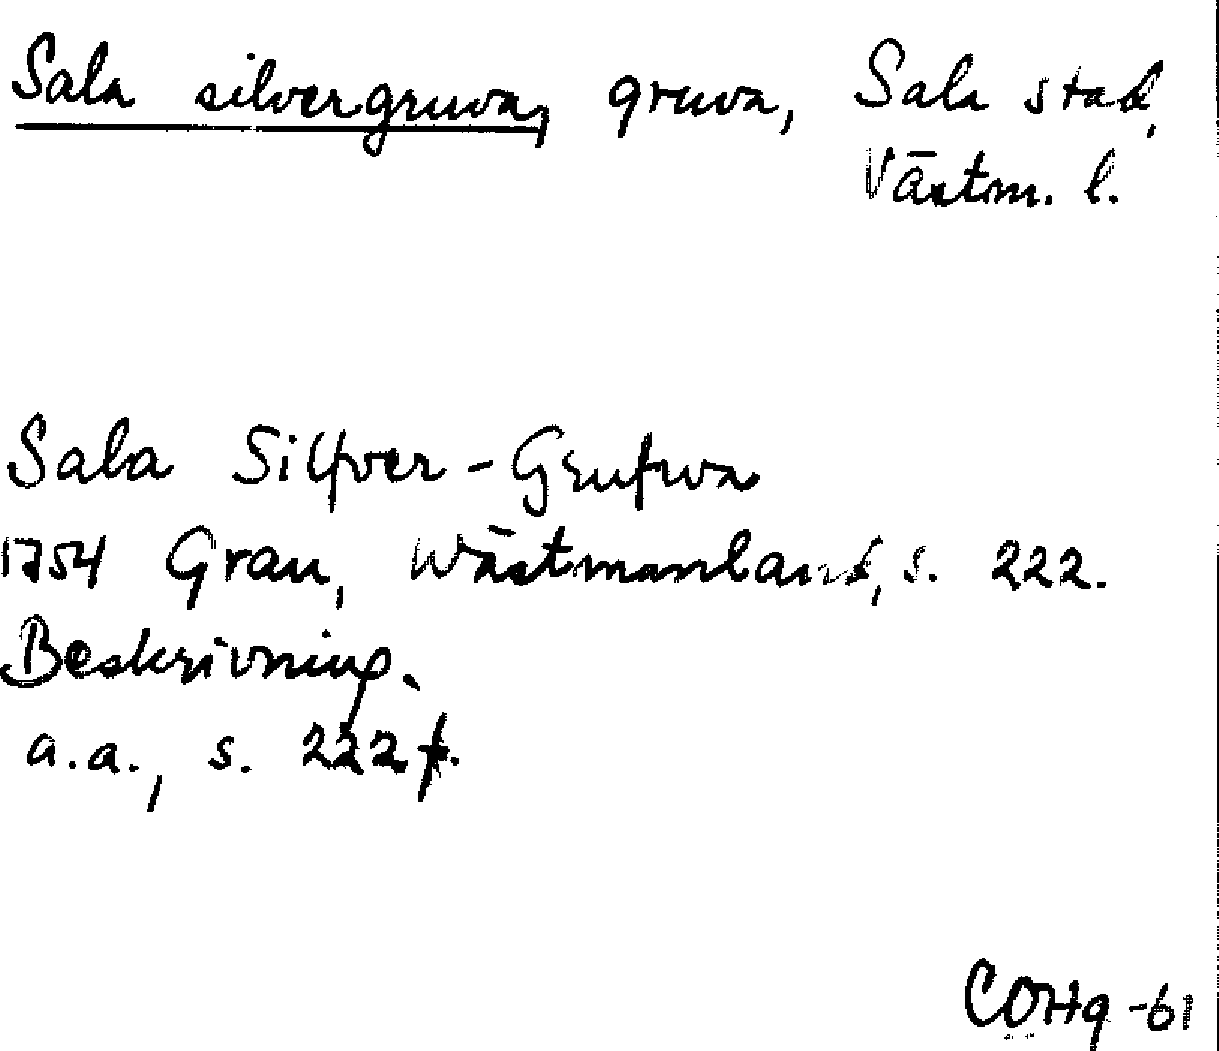 Sala silvergruva, gruva, Sala stad,
Västm. l.
Sala Silfver-Grufwa
1754 Grau, Wästmanland, s. 222.
Beskrivning.
a.a., s. 222 f.
COHg -61